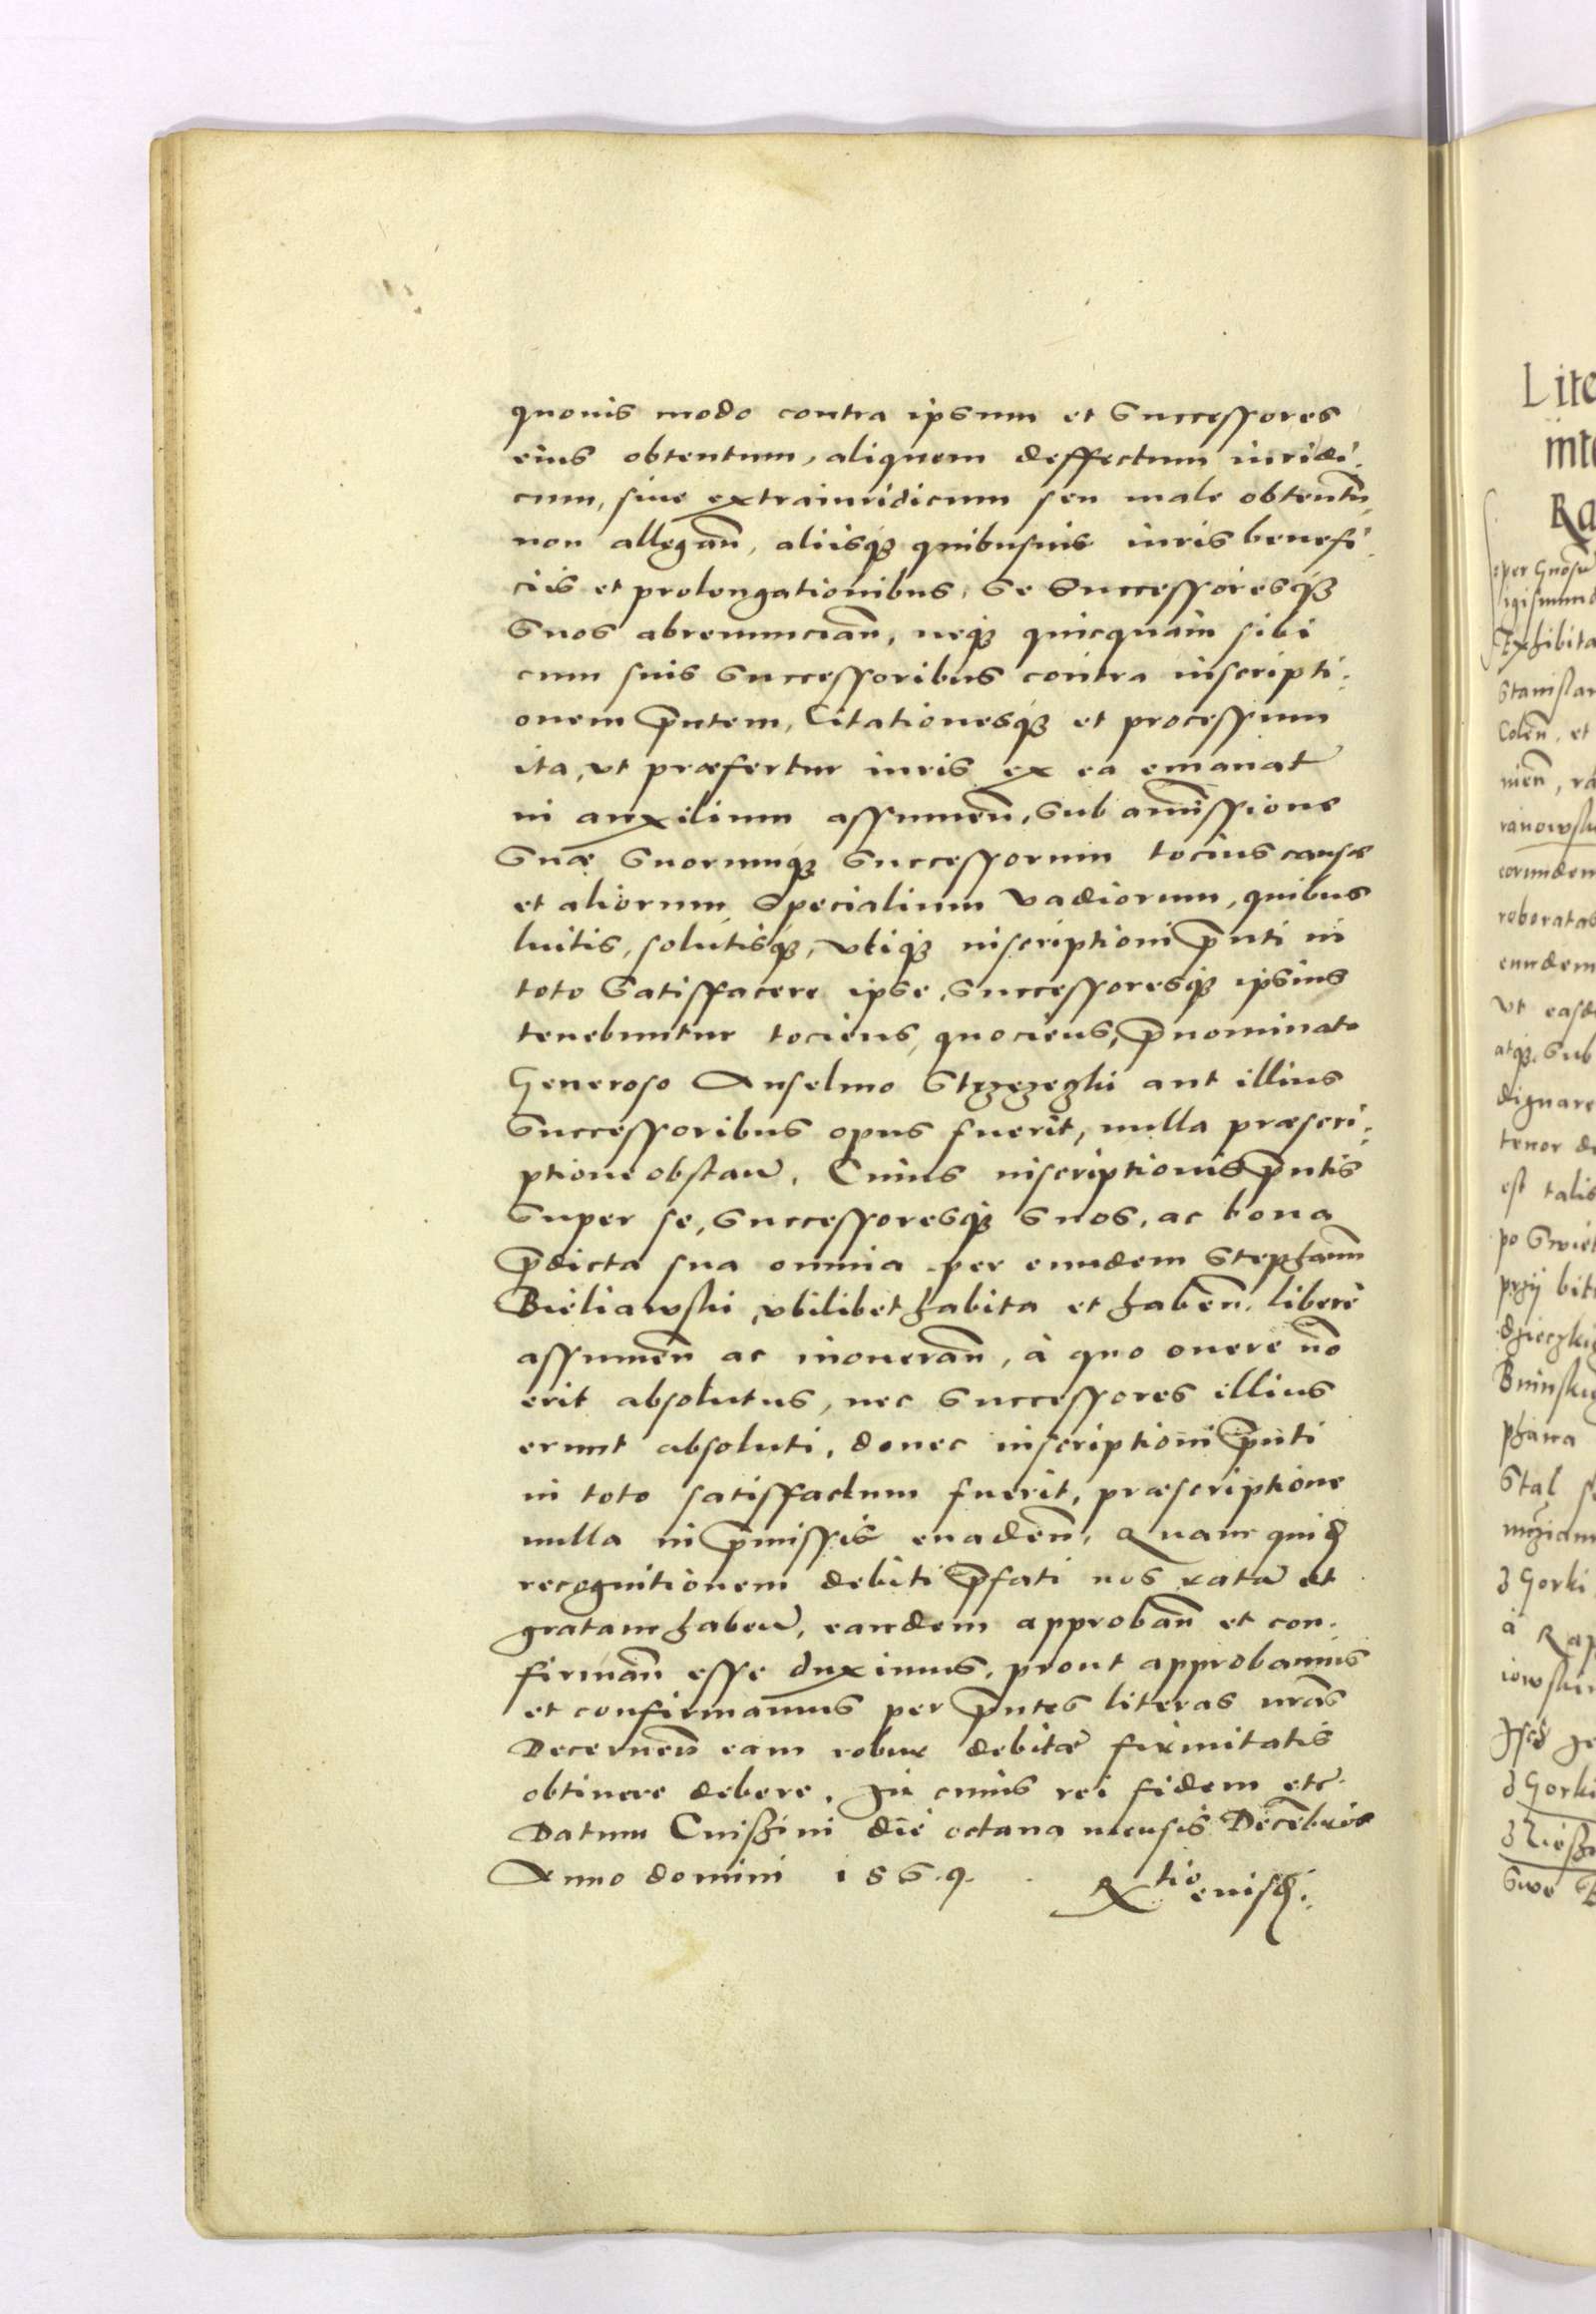 quouis modo contra ipsum et Successores
eius obtentum, aliquem deffectum iuridi:
cum, siue extraiuridicum seu male obtentū
non allegan̄, aliisq3 quibusuis iuris benefi
ciis et prolongationibus, se Successoresq3
Suos abrenuncian̄, neq3 quicquam sibi
cum suis Successoribus contra inscripti:
onem p̄ntem, Citationesq3 et processum
ita, vt præfertur iuris ex ea emanat̄
in auxilium assumen̄, Sub amissione
Suæ Suorumq3 Successorum tocius causæ
et aliorum Specialium vadiorum, quibus
luitis, solutisq3, vtiq3 inscriptioni p̄nti in
toto Satisfacere ipse, Successoresq3 ipsius
tenebuntur tociens, quociens, p̄nominato
Generoso Anselmo aut illius
Successoribus opus fuerit, nulla præscri:
ptione obstan̄. Cuius inscriptionis p̄ntis
Super se, Successoresq3 Suos, ac bona
p̄dicta sua omnia per eundem Stephanū
Bieliawski vbilibet habita et haben̄ liberè
assumen̄ ac inoneran̄, à quo onere nō
erit absolutus, nec Successores illius
erunt absoluti, donec inscriptioni p̄nti
in toto satisfactum fuerit, præscriptione
nulla in p̄missis euaden̄. Quam quid̄
recognitionem debiti p̄fati nos ratā et
gratam haben̄, eandem approban̄ et con:
firman̄ esse duximus, prout approbamus
et confirmamus per p̄ntes literas nrās
Decernen̄ eam robur debitæ firmitatis
obtinere debere. In cuius rei fidem etc̄
Datum Cnißini die octaua mensis Decēbris
Anno domini 1569.
Rtio eiusd̄:
Lite
inte
Ra
per Gnōsū
igismund
Exhibita
Stanislan
Colēn, et
nien̄, ra
ranowski
eorundem
roboratas
eundem
vt easd
atq3 Sub
dignare
tenor de
est talis
po Swiet
bit
Bninski
phana
Stal s
3 Gorki
à Rap
iowski
3 Gorki
Swe